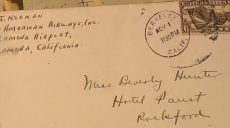 F.J. NOONAN
AMERICAN AIRWAYS, INC.
ALAMEDA AIRPORT,
ALAMEDA, CALIFORNIA
BERKELEY
NOV
1130PM
CALIF.
Miss Beverly Hunter
Hotel Faust
Rockford